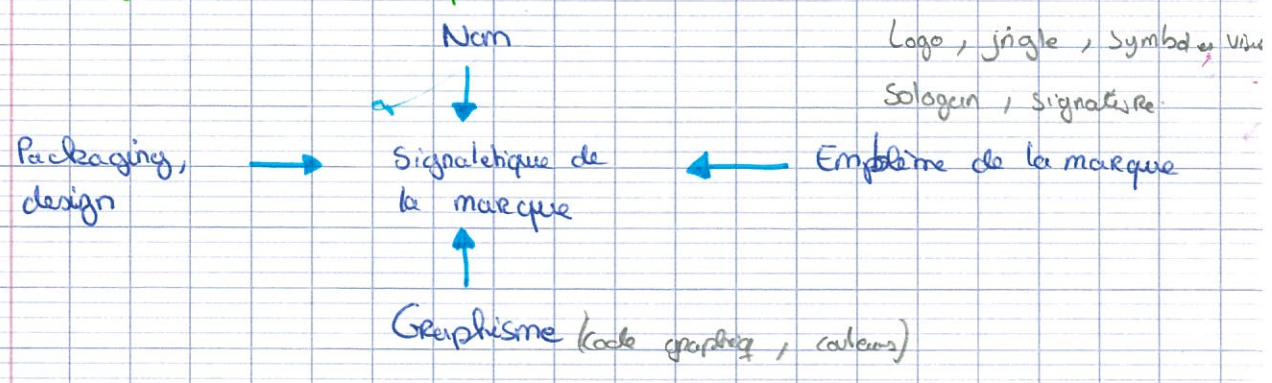 Nom
Logo, jingle, symboles
Sologan, signature.
Packaging,
design
Signaletique de
la marque
Emblème de la marque
Graphisme (code graphiq, couleurs)